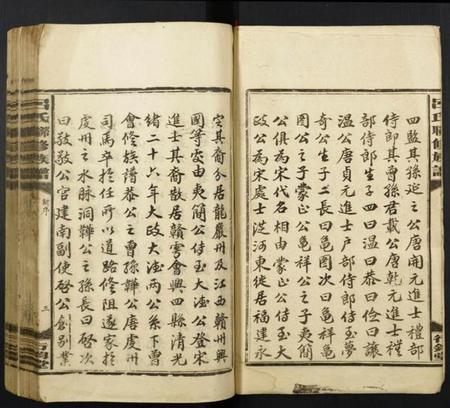 四監其孫延之公唐開元進士禮部
侍郎其曾孫君載公唐乾元進士禮
部侍郎生子四曰温曰恭曰儉曰讓
温公唐貞元進士户部侍郎侍玉夢
奇公生子二長曰亀圖次曰亀祥亀
圖公之子蒙正公亀祥公之子夷簡
公俱為宋代名相由蒙正公侍玉大
公為宋處士從河東徙居福建永
定其裔分居龍巖州及江西贛州興
國等處由夷簡公侍玉大淦公登宋
進士其裔散居贛雩會興四縣清光
緒二十六年大政大淦兩公系下曾
會修族譜恭公之曾孫韡公唐虔州
司馬卒於任所以道路修阻遂家於
虔州之水脉洞韡公之孫長曰啓次
曰敬敬公官建南副使啓公創別業
吕氏聯修族譜
新序
三
吕氏聯修族譜